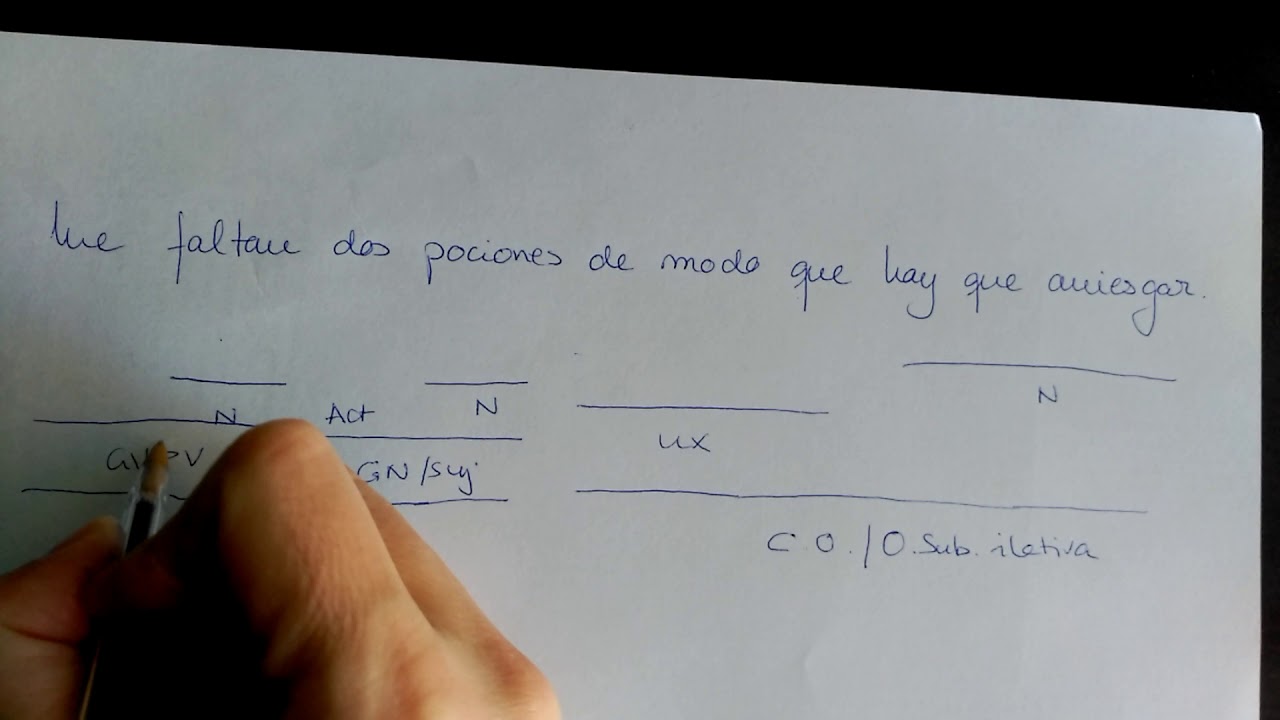 Me faltan dos pociones de modo que hay que arriesgar.
N Act N N
GV/PV GN/Suj nx
C O. / O. Sub. ilativa